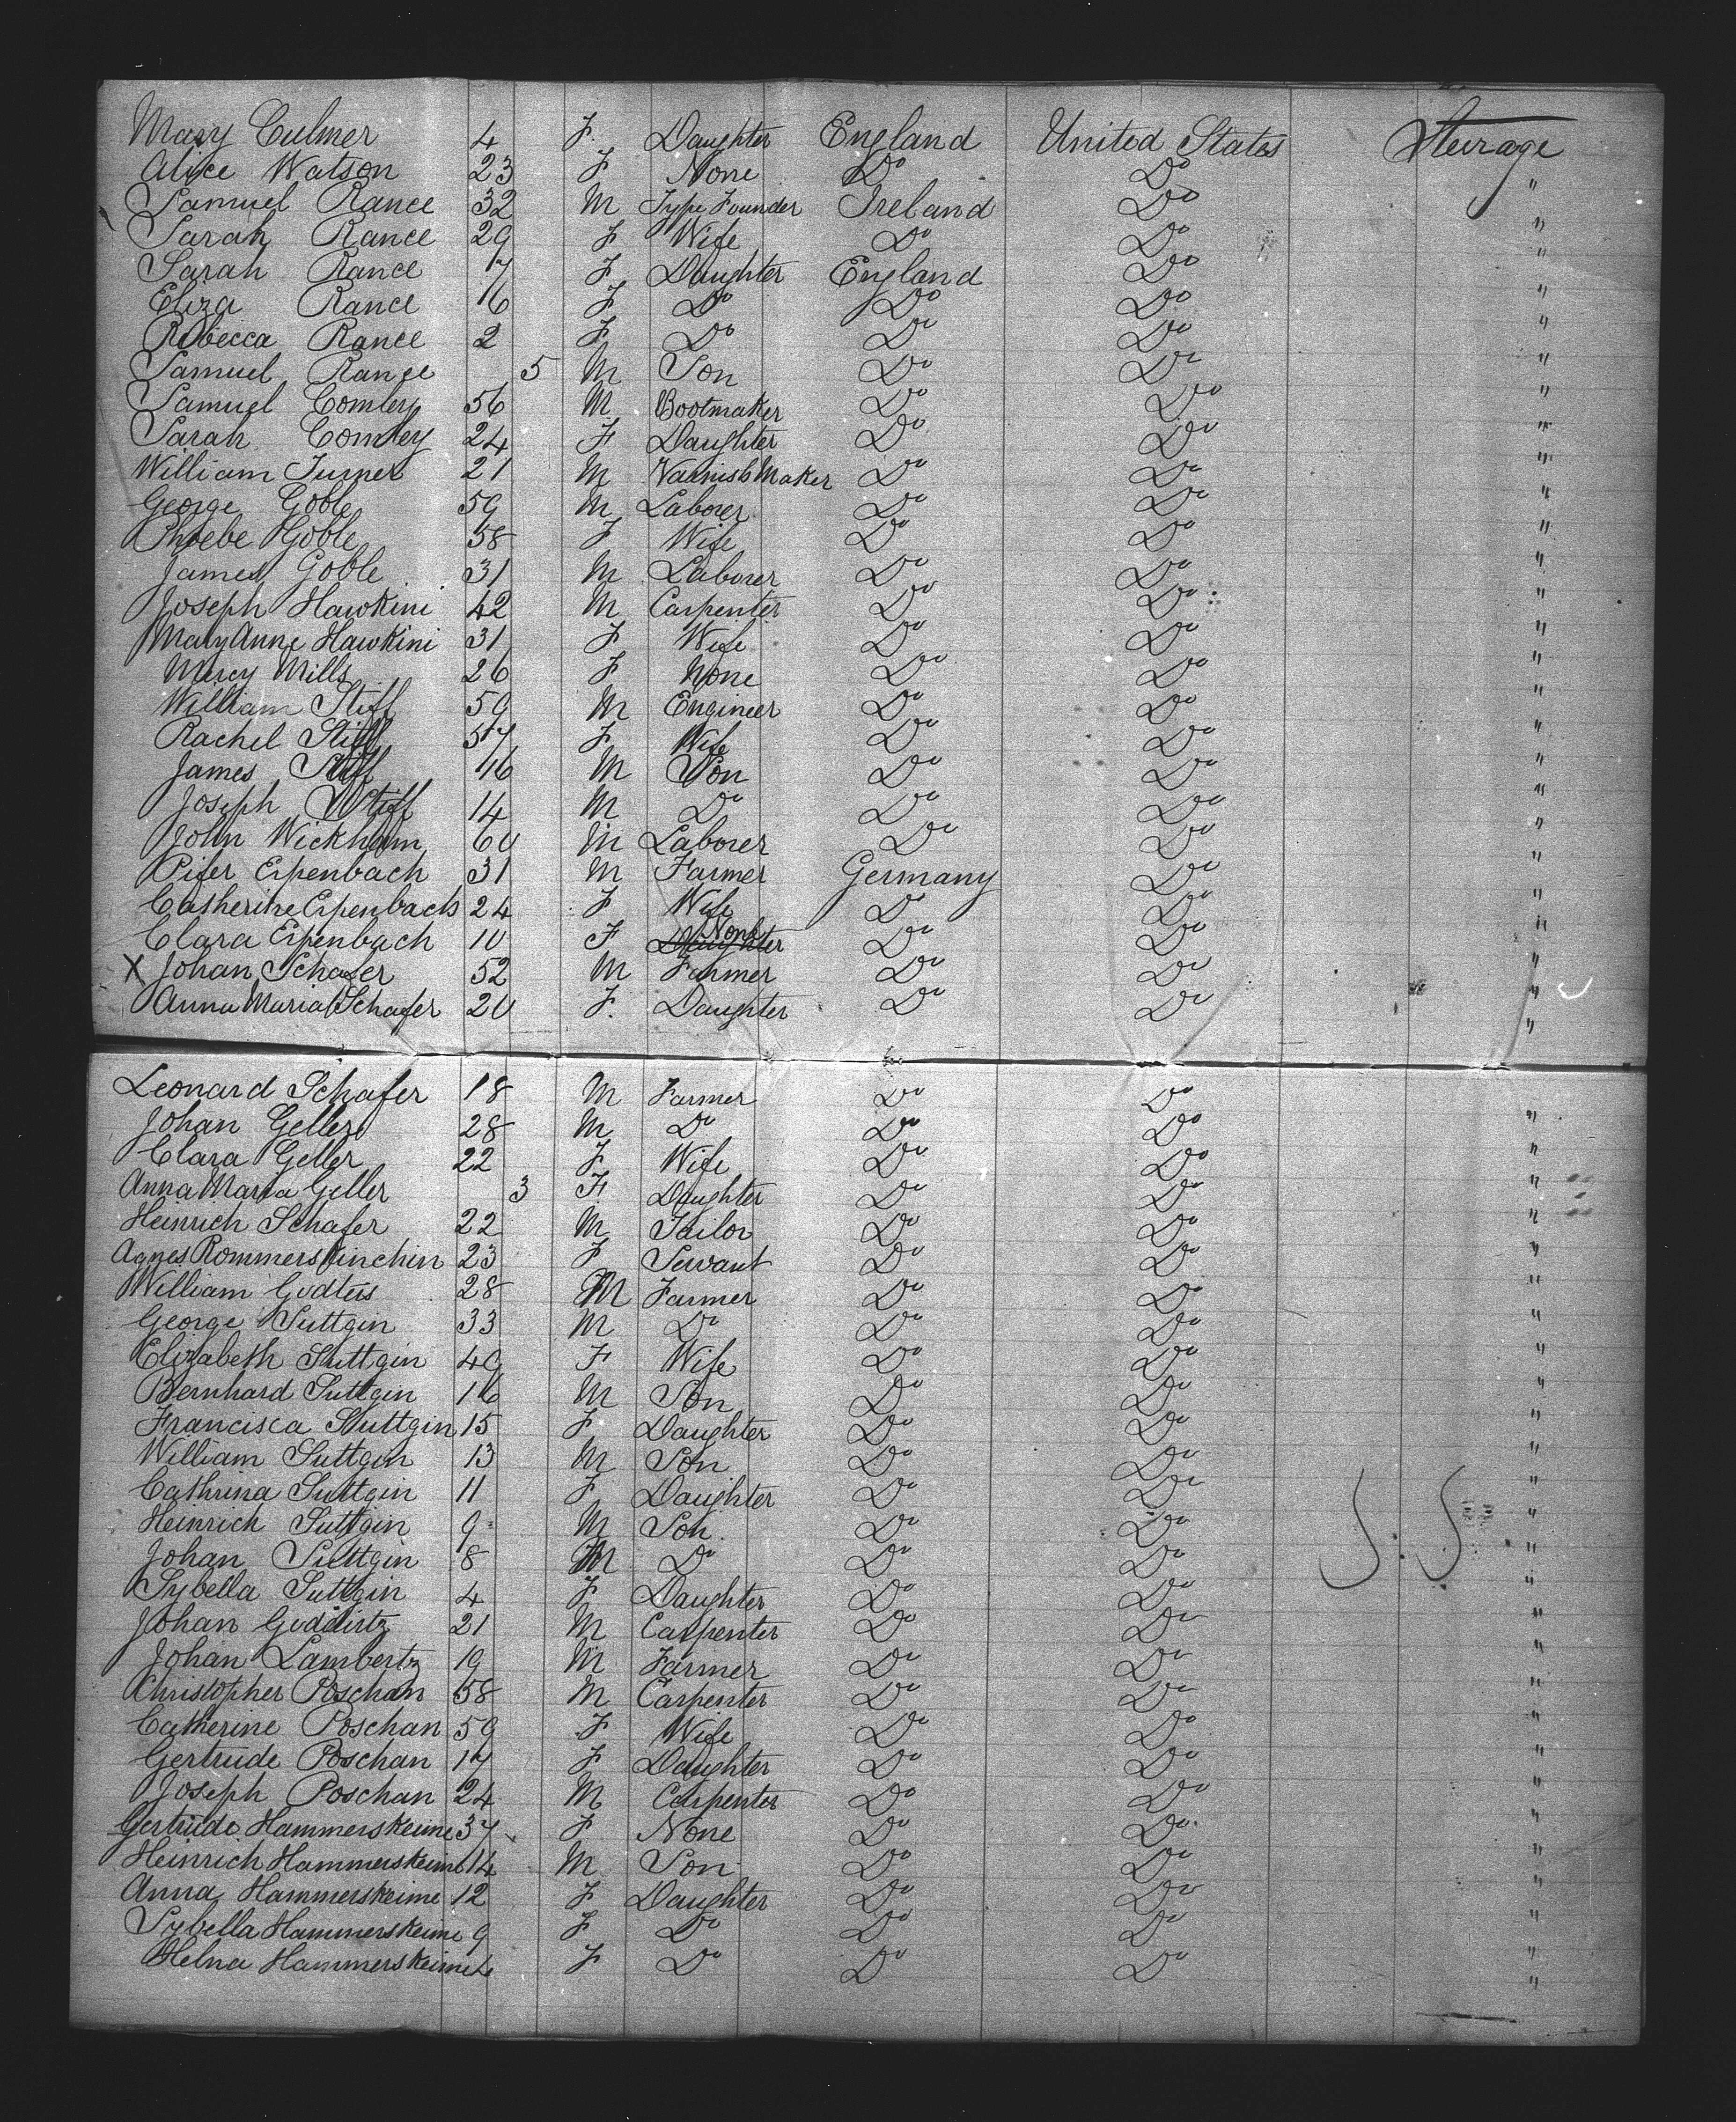 Mary Culmer 4 F. Daughter England United States Steerage
Alice Watson 23 F None Do Do "
Samuel Rance 32 M Type Founder Ireland Do "
Sarah Rance 29 F Wife Do Do "
Sarah Rance 7 F Daughter England Do "
Eliza Rance 6 F Do Do Do "
Rebecca Rance 2 F Do Do Do "
Samuel Rance 5 M Son Do Do "
Samuel Comley 56 M Bootmaker Do Do "
Sarah Comley 24 F Daughter Do Do "
William Turner 21 M Varnish Maker Do Do "
George Goble 59 M Laborer Do Do "
Phoebe Goble 58 F Wife Do Do "
James Goble 31 M Laborer Do Do "
Joseph Hawkini 42 M Carpenter Do Do "
Mary Anne Hawkini 31 F Wife Do Do "
Mercy Mills 26 F None Do Do "
William Stiff 59 M Engineer Do Do "
Rachel Stiff 57 F Wife Do Do "
James Stiff 16 M Son Do Do "
Joseph Stiff 14 M Do Do Do "
John Wickham 60 M Laborer Do Do "
Pifer Erpenbach 31 M Farmer Germany Do "
Catherine Erpenbach 24 F Wife Do Do "
Clara Erpenbach 10 F Daughter None Do Do "
X Johan Schafer 52 M Farmer Do Do "
Anna Maria Schafer 20 F. Daughter Do Do "
Leonard Schafer 18 M Farmer Do Do "
Johan Geller 28 M Do Do Do "
Clara Geller 22 F Wife Do Do "
Anna Maria Geller 3 F Daughter Do Do "
Heinrich Schafer 22 M Tailor Do Do "
Agnes Rommerskinchin 23 F Servant Do Do "
William Godters 28 M Farmer Do Do "
George Suttgin 33 M Do Do Do "
Elizabeth Suttgin 40 F Wife Do Do "
Bernhard Suttgin 16 M Son Do Do "
Francisca Suttgin 15 F Daughter Do Do "
William Suttgin 13 M Son Do Do "
Cathrina Suttgin 11 F Daughter Do Do "
Heinrich Suttgin 9 M Son Do Do "
Johan Suttgin 8 M Do Do Do "
Sybella Suttgin 4 F Daughter Do Do "
Johan Goddirtz 21 M Carpenter Do Do "
Johan Lambertz 19 M Farmer Do Do "
Christopher Poschan 58 M Carpenter Do Do "
Catherine Poschan 59 F Wife Do Do "
Gertrude Poschan 17 F Daughter Do Do "
Joseph Poschan 24 M Carpenter Do Do "
Gertrude Hammerskeime 37 F None Do Do "
Heinrich Hammerskeime 14 M Son Do Do "
Anna Hammerskeime 12 F Daughter Do Do "
Sybella Hammerskeime 9 F Do Do Do "
Helna Hammerskeime 4 F Do Do Do "